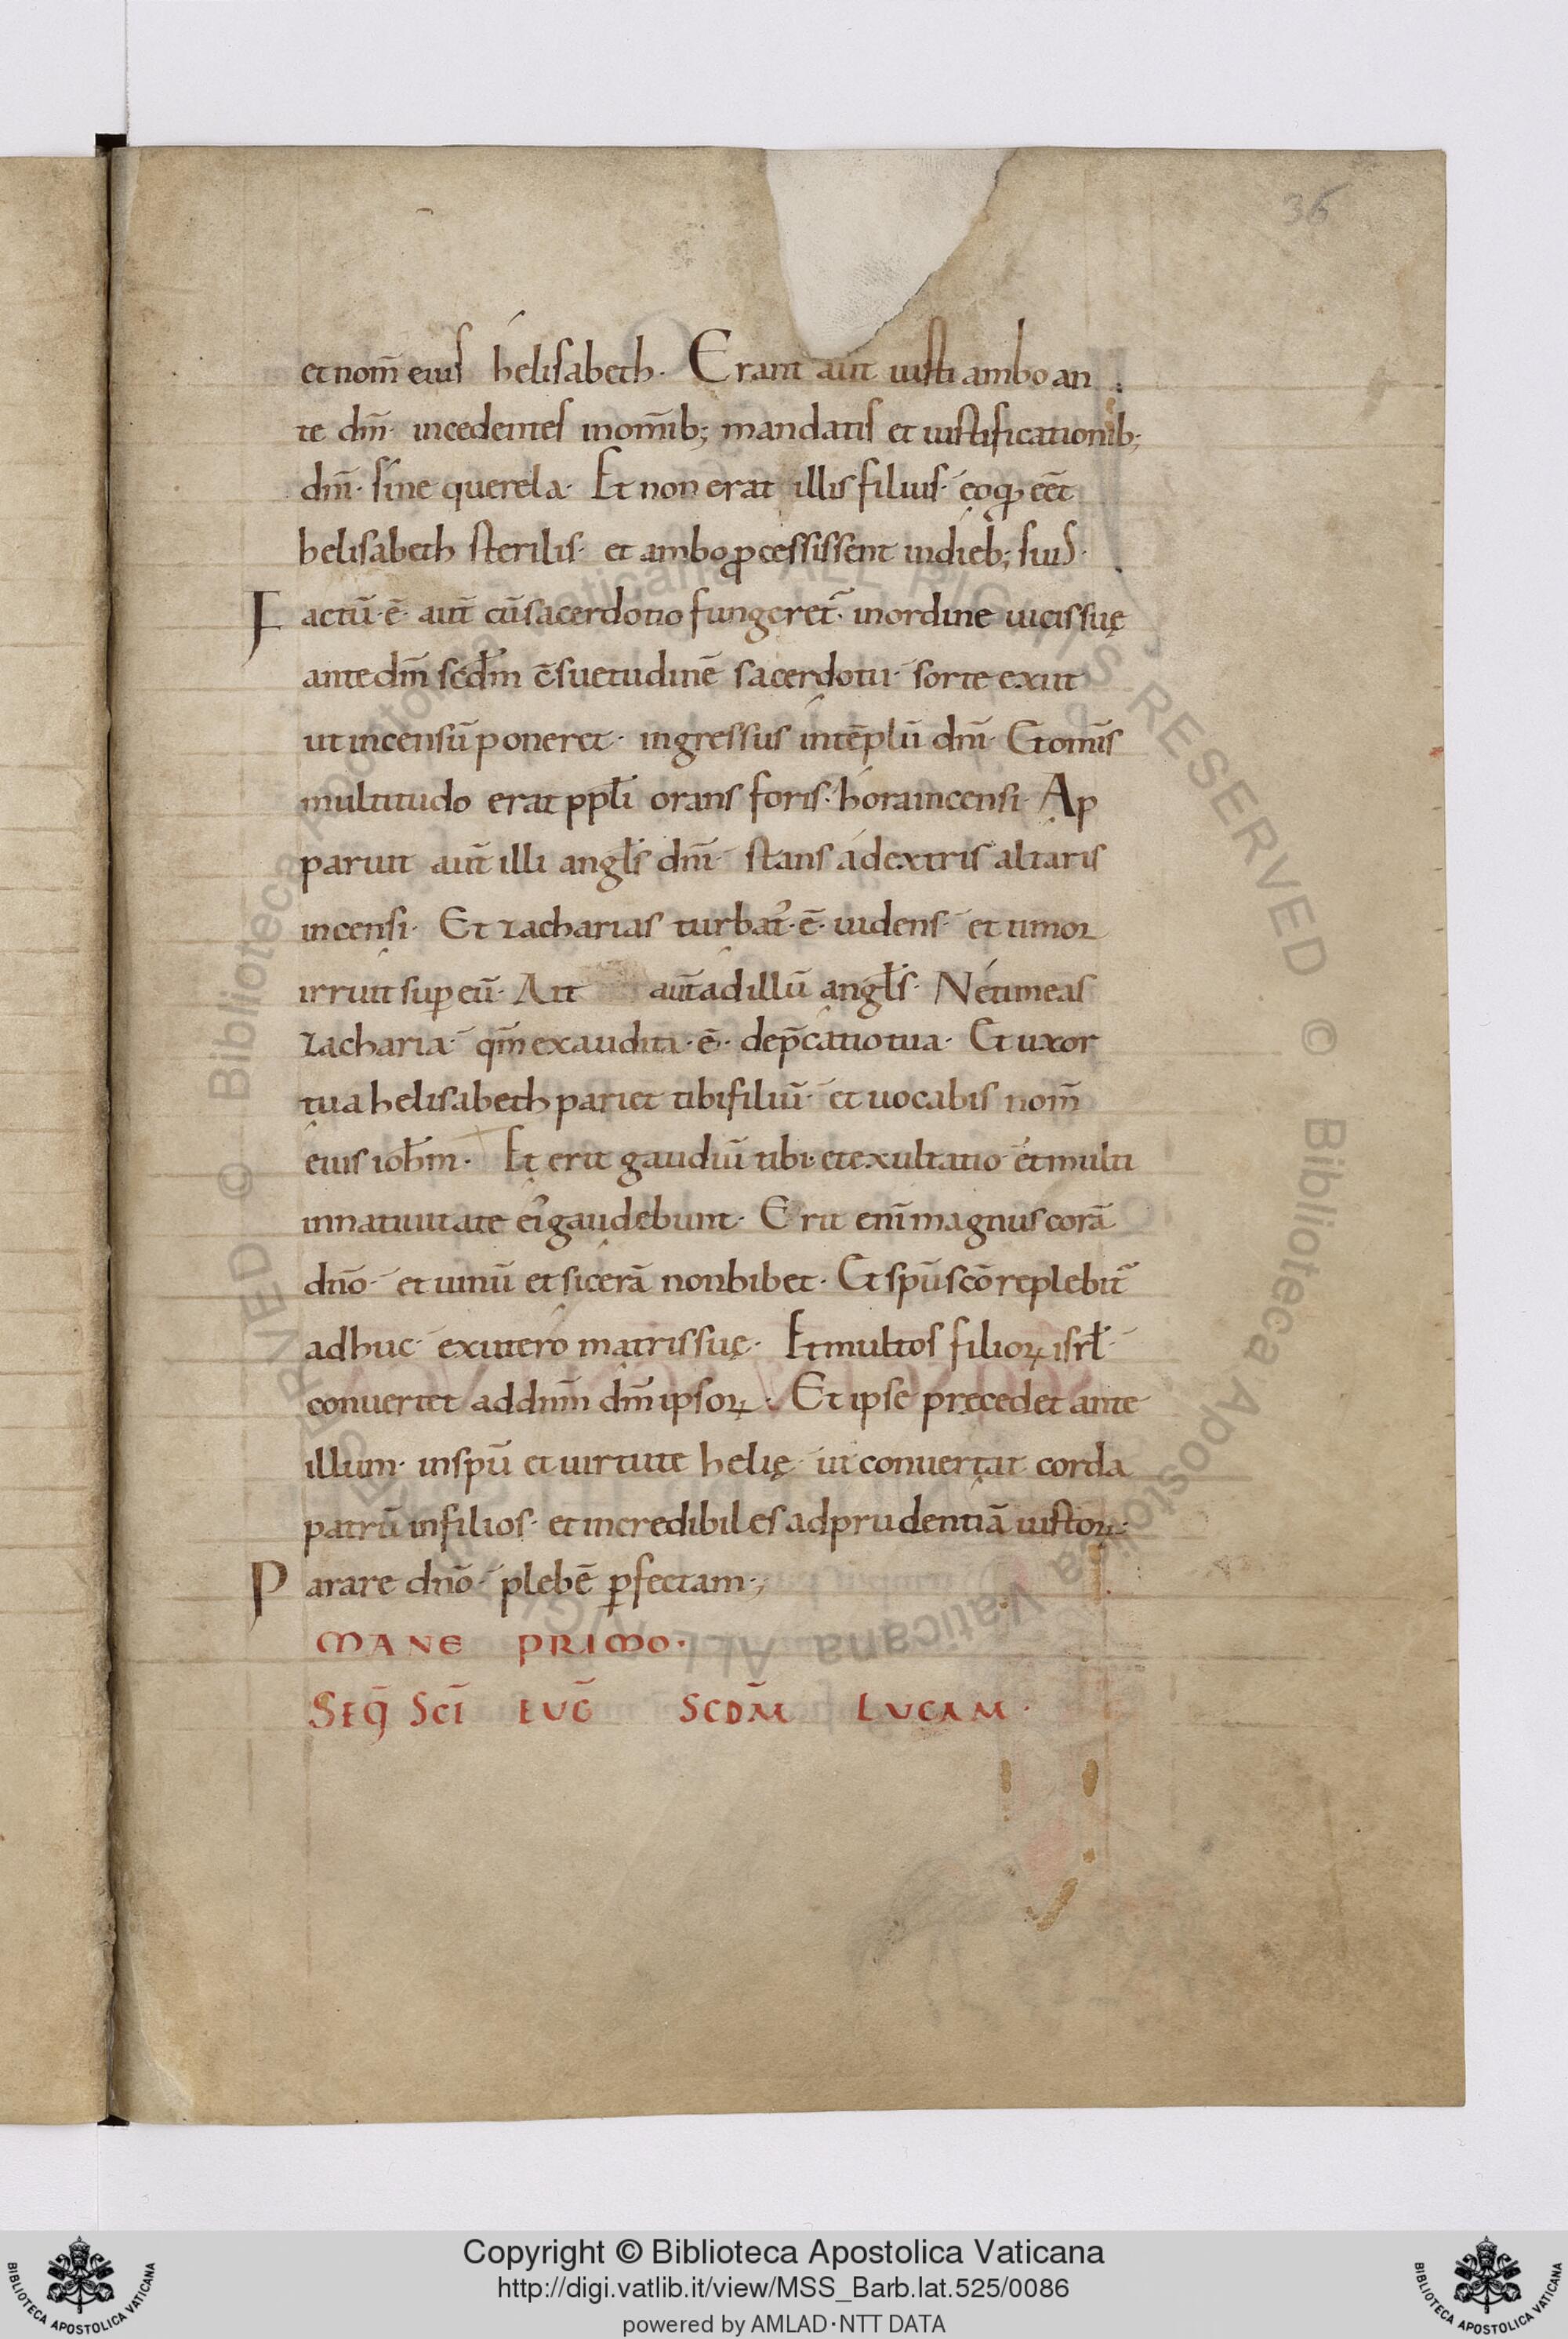 36
et nom̄ eius helisabeth. Erant aut̄ iusti ambo an
te dm̄. incedentes in om̄ib; mandatis et iustificationib;
dn̄i. sine querela. Et non erat illis filius. eo qd̄ eēt
helisabeth sterilis. et ambo ꝓcessissent in dieb; suis.
Factū. ē. aut̄ cū sacerdotio fungeret᷑. in ordine uicis suę
ante dm̄ scdm̄ c̄suetudinē sacerdotii. sorte exiit
ut incensū poneret. ingressus in tēplū dn̄i. Et om̄is
multitudo erat ppłi orans foris. hora incensi. Ap
paruit aut̄ illi angłs dn̄i. stans a dextris altaris
incensi. Et zacharias turbat᷒. ē. uidens. et timor
irruit sup̱ eū. Ait aut̄ ad illū angłs. Ne timeas
zacharia. qm̄ exaudita. ē. dep̄catio tua. Et uxor
tua helisabeth pariet tibi filiū. et uocabis nom̄
eius ioħm. Et erit gaudiū tibi. et exultatio. et multi
in natiuitate ei᷒ gaudebunt. Erit enī magnus corā
dn̄o. et uinū et sicerā non bibet. Et sp̄u sc̄o replebit᷑
adhuc. ex utero matris suę. Et multos filioꝝ isrł.
conuertet ad dn̄m dm̄ ipsoꝝ. Et ipse pręcedet ante
illum. in sp̄u et uirtute helię. ut conuertat corda
patrū in filios. et incredibiles ad prudentiā iustoꝝ.
Parare dn̄o. plebē ꝑfectam.,
MANE PRIMO.
SEQ̄ SCĪ EUḠ SCDM̄ LUCAM.
© Biblioteca Apostolica Vaticana ALL RIGHTS RESERVED © Biblioteca Apostolica Vaticana ALL RIGHTS RESERVED
BIBLIOTECA APOSTOLICA VATICANA
Copyright © Biblioteca Apostolica Vaticana
http://digi.vatlib.it/view/MSS_Barb.lat.525/0086
powered by AMLAD·NTT DATA
BIBLIOTECA APOSTOLICA VATICANA